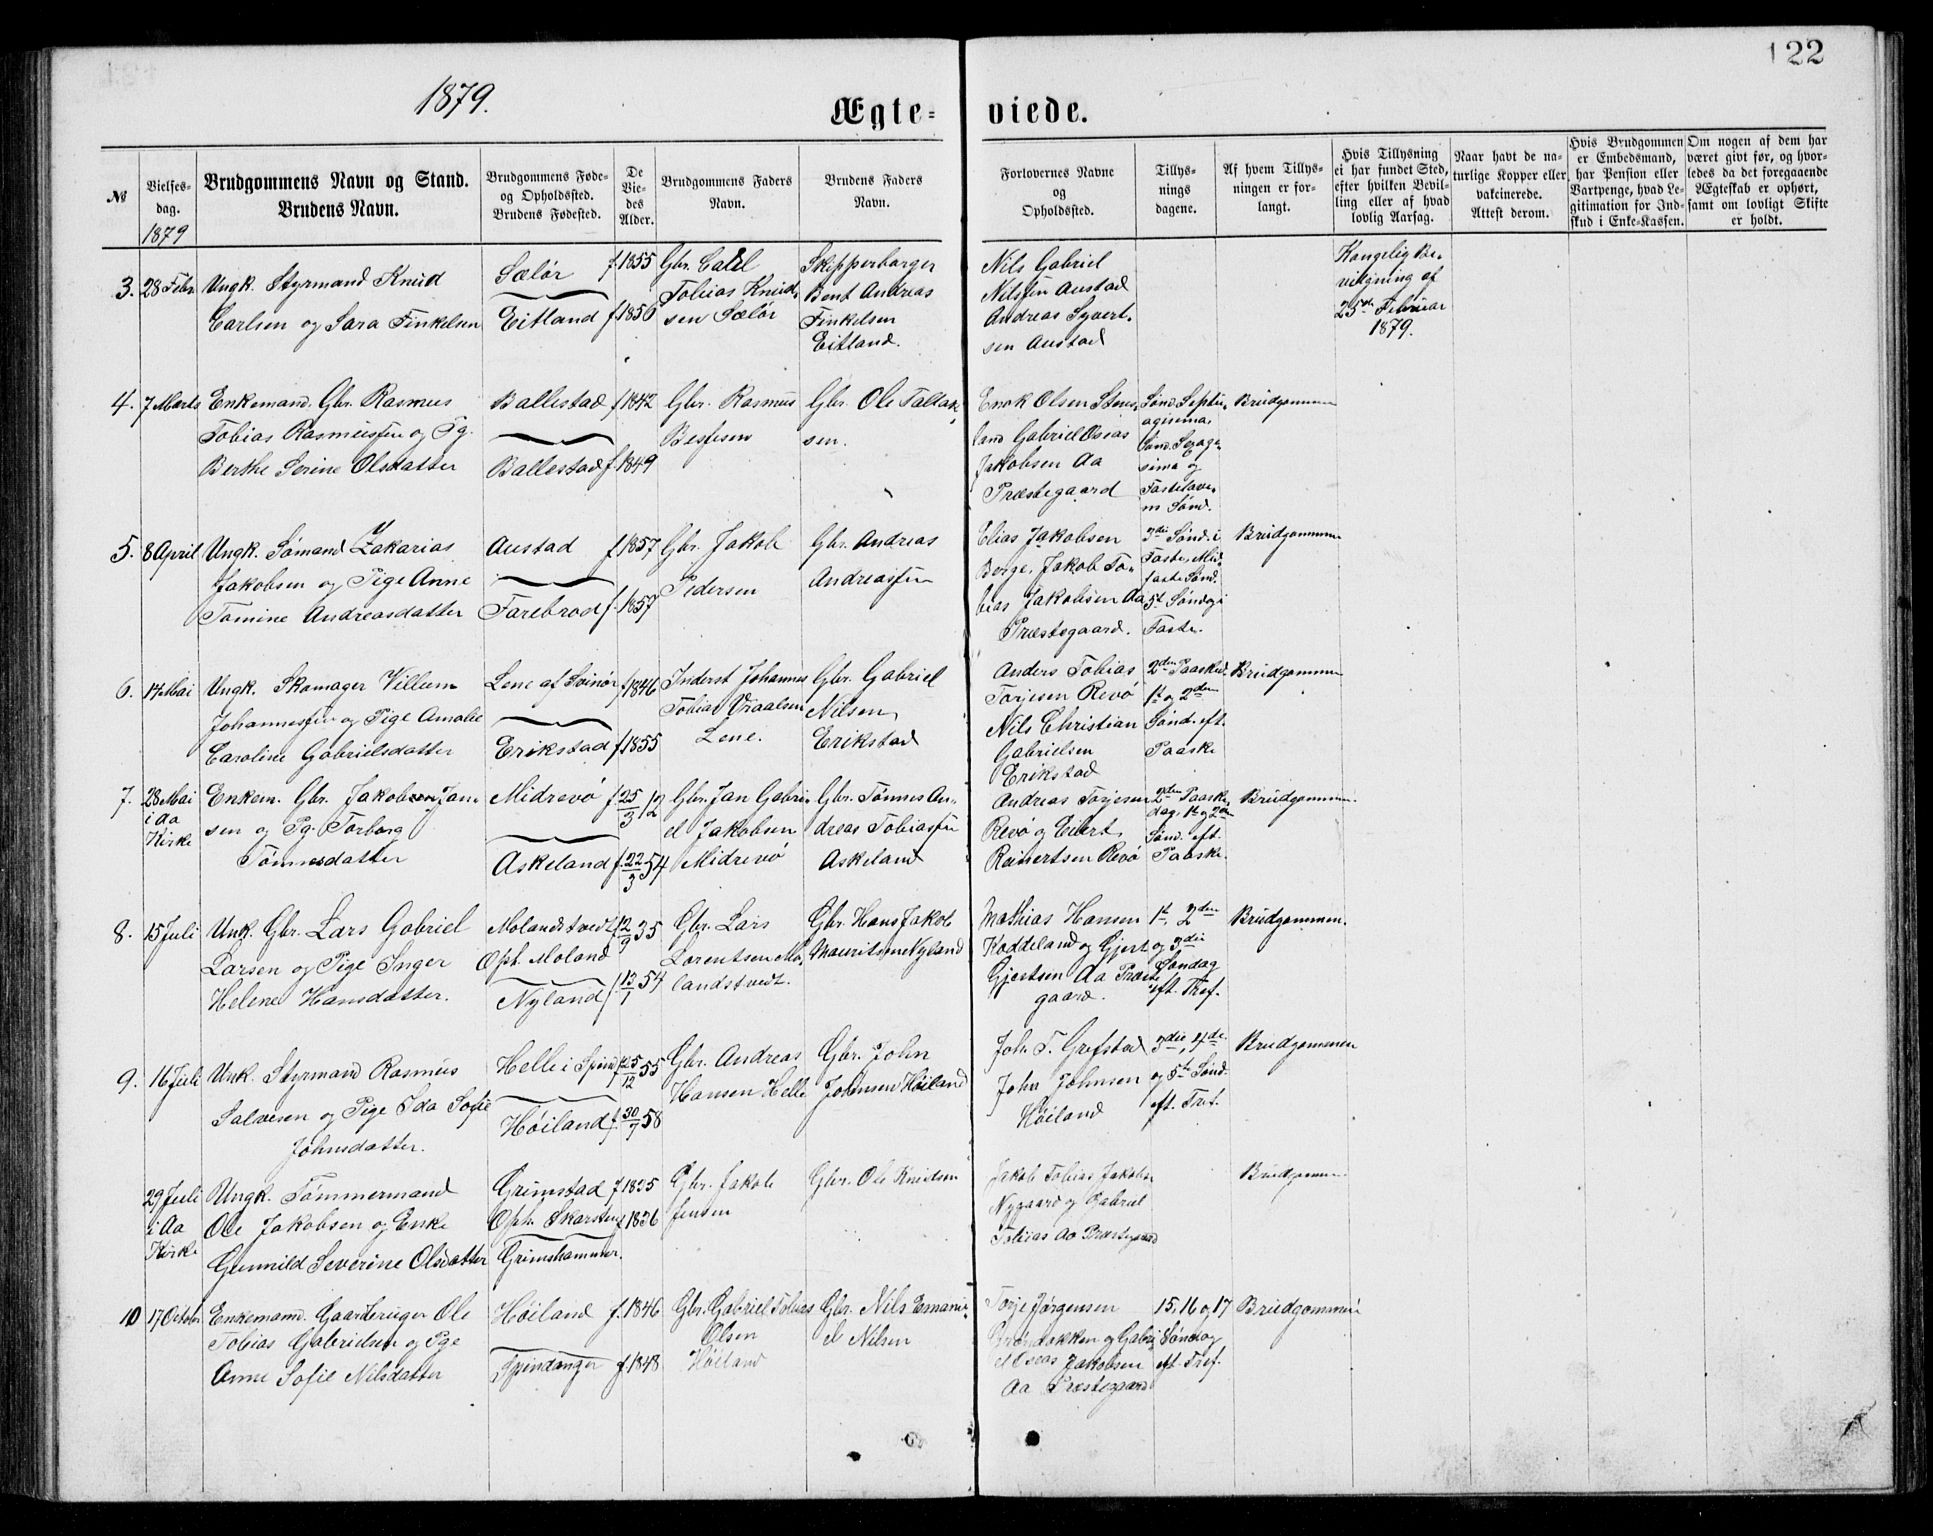 122
1879.
Ægte- viede.
№
Vielses-
dag.
1879
Brudgommens Navn og Stand.
Brudens Navn.
Brudgommens Føde-
og Opholdssted.
Brudens Fødested.
De
Vie-
des
Alder.
Brudgommens Faders
Navn.
Brudens Faders
Navn.
Forlovernes Navne
og
Opholdssted.
Tillys-
nings
dagene.
Af hvem Tillys-
ningen er for-
langt.
Hvis Tillysning
ei har fundet Sted,
efter hvilken Bevil-
ling eller af hvad
lovlig Aarsag.
Naar havt de na-
turlige Kopper eller
vakcinerede.
Attest derom.
Hvis Brudgommen
er Embedsmand,
har Pension eller
Vartpenge, hvad Le-
gitimation for Ind-
skud i Enke-Kassen.
Om nogen af dem har
været givt før, og hvor-
ledes da det foregaaende
Ægteskab er ophørt,
samt om lovligt Skifte
er holdt.
3. 28 Febr.
Ungk. Styrmand Knud
Carlsen og Sara Finkelsen
Sælør
Eitland
f 1855
f 1856
Gbr. Carl
Tobias Knud-
sen Sælør
Skipperborger
Bent Andreas
Finkelsen
Eitland.
Nils Gabriel
Nilssen Austad
Andreas Syvert-
sen Austad
Kongelig Be-
vilgning af
25de Februar
1879.
4. 7 Marts
Enkemand, Gbr. Rasmus
Tobias Rasmussen og Pg.
Berthe Serine Olsdatter
Ballestad
Ballestad
f 1842
f. 1849
Gbr. Rasmus
Gbr. Ole Tallak-
sen.
Enok Olsen Stens-
land Gabriel Oseas
Jakobsen Aa
Præstegaard
Sønd. Septu-
agisima,
Sønd. Sexage-
sima og
Fastelave-
ns Sønd.
Brudgommen
5. 8 April
Ungk. Sømand Zakarias
Jakobsen og Pige Anne
Tomine Andreasdatter
Austad
Farebrod
f 1857
f. 1857
Gbr. Jakob
Pedersen
Gbr. Andreas
Andreassen
Elias Jakobsen
Berge, Jakob To-
bias Jakobsen Aa
Præstegaard.
3die Sønd. i
Faste, Mid-
faste Sønd.
5te Søndag i
Faste.
Brudgommen
6. 14 Mai
Ungk. Skomager Villum
Johannessen og Pige Amalie
Caroline Gabrielsdatter
Lene af Svinør
Erikstad
f. 1846
f. 1855
Inderst Johannes
Tobias Vraalsen
Lene.
Gbr. Gabriel
Nilsen
Erikstad
Anders Tobias
Torjesen Revø
Nils Christian
Gabrielsen
Erikstad
2den Paasked.
1ste og 2den
Sønd. eft.
Paaske
Brudgommen
7. 28 Mai
i Aa
Kirke
Enkem. Gbr. Jakob Jan-
sen og Pg. Torborg
Tønnesdatter
Midrevø
Askeland
f 25/3 12
f. 22/3 54
Gbr. Jan Gabri-
el Jakobsen
Midrevø
Gbr. Tønnes An-
dreas Tobiassen
Askeland
Andreas Torjesen
Revø og Eilert
Reinertsen Revø
2den Paaske-
dag, 1ste og 2den
Sønd. eft.
Paaske.
Brudgommen.
8. 15 Juli
Unk. Gbr. Lars Gabriel
Larsen og Pige Inger
Helene Hansdatter.
Molandstvedt
Oph. Moland
Nyland
f 12/9 35
f. 13/1 54
Gbr. Lars
Lorentsen Mo-
landstvedt.
Gbr. Hans Jakob
Mauritsen Nyland
Mathias Hansen
Koddeland og Gjert
Gjertsen Aa Præste-
gaard.
1ste, 2den
og 3die
Søndag
eft. Tref.
Brudgommen.
9. 16 Juli
Unk. Styrmand Rasmus
Salvesen og Pige Ida Sofie
Johnsdatter.
Helle i Spind
Høiland
f 25/12 55
f. 30/7 58
Gbr. Andreas
Hansen Helle
Gbr. John
Johnsen Høiland
Joh. T. Grefstad
John Johnsen
Høiland
3die, 4de
og 5te Sønd.
eft. Tref.
Brudgommen
29 Juli
i Aa
Kirke
Ungk. Tømmermand
Ole Jakobsen og Enke
Gunnild Severine Olsdatter
Grimstad
Oph. Skarsten
Grimshammer.
f 1835
f. 1836
Gbr. Jakob
Jensen
Gbr. Ole Knudsen
Jakob Tobias Jakobsen
Nygaard og Gabriel
Tobias Aa Præstegaard
Brudgommen
10 17 October
Enkemand. Gaardbruger Ole
Tobias Gabrielsen og Pge
Anne Sofie Nilsdatter
Høiland
Spindanger
f. 1846
f. 1848
Gbr. Gabriel Tobias
Olsen
Høiland
Gbr. Nils Emanu-
el Nilsen
Torje Jørgensen
og Gabri-
el Oseas Jakobsen
Aa Præstegaard
15, 16 og 17
Søndag
eft. Tref.
Brudgommen